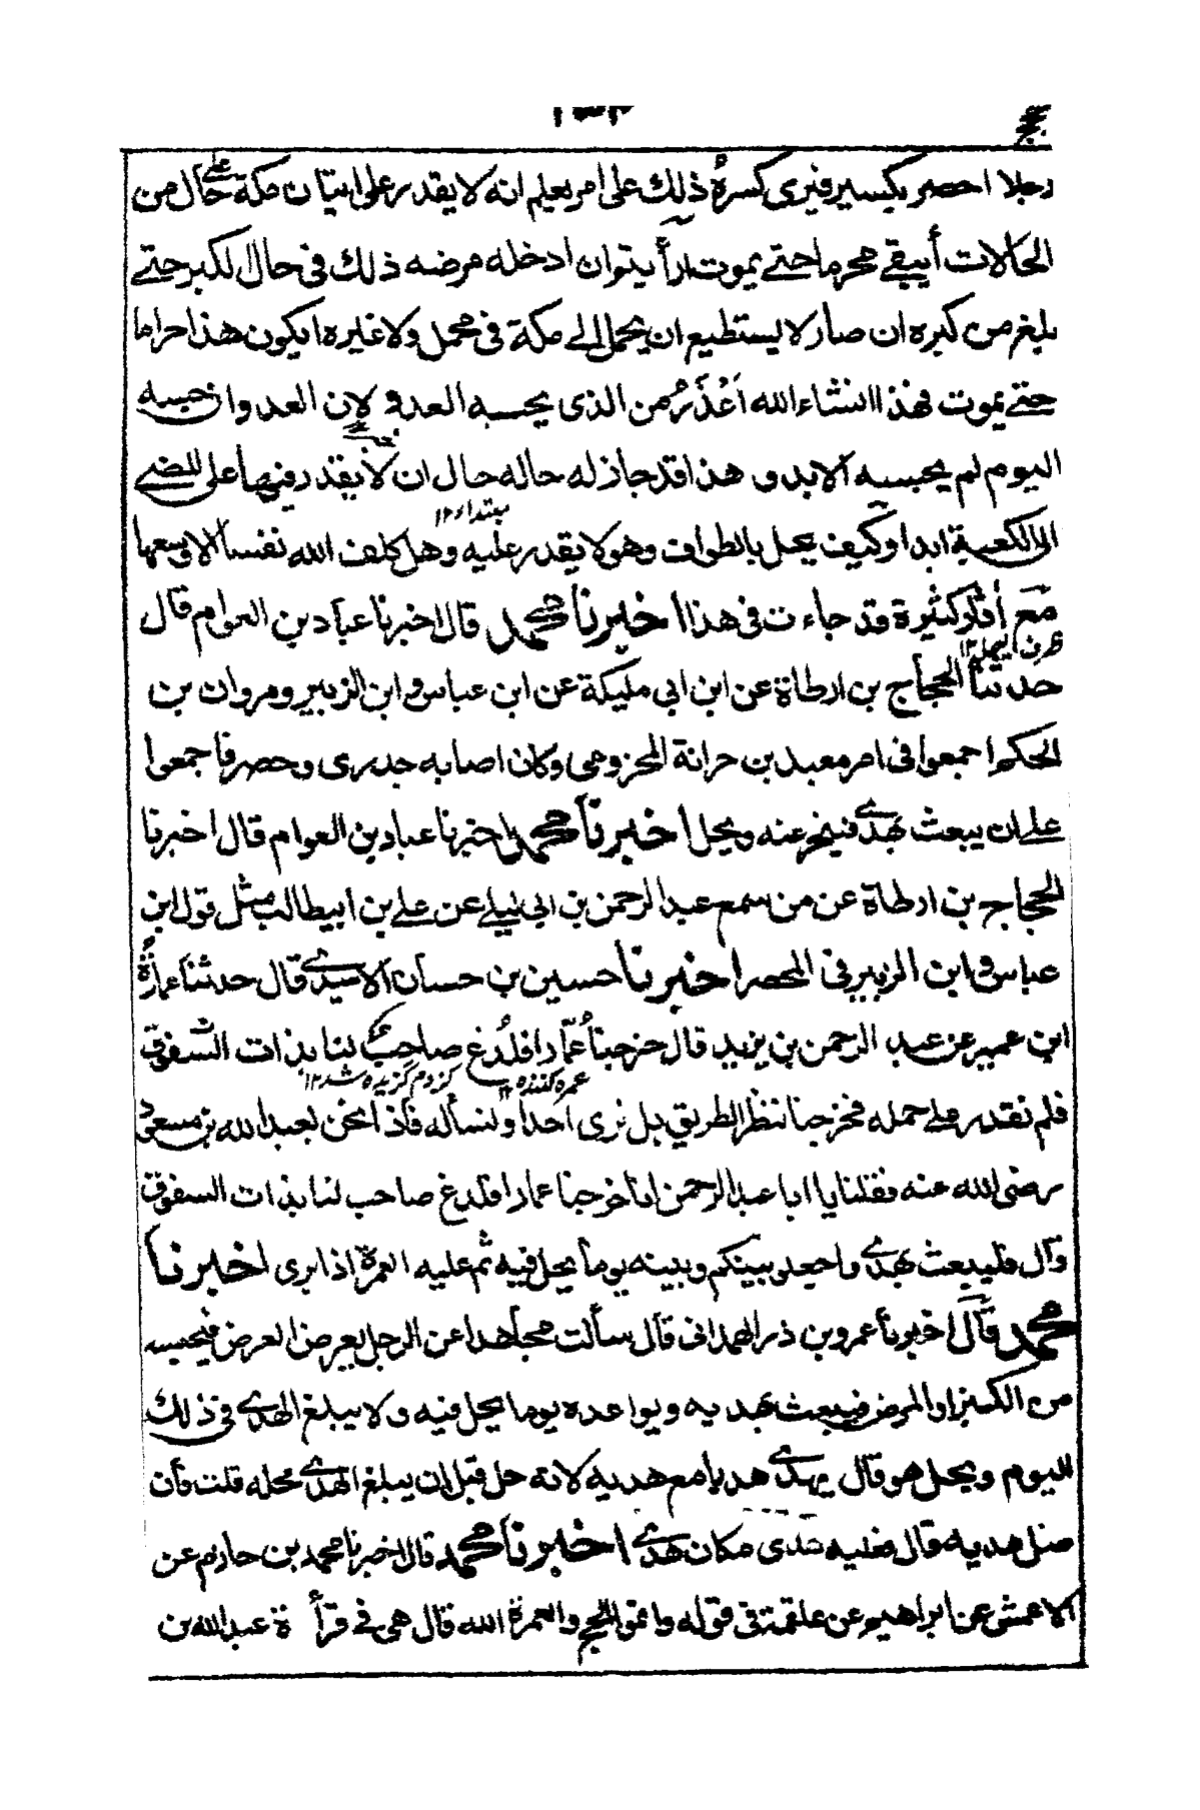 حج
رجلا احصر بكسير فبرى كسره ذلك على امر يعلم انه لا يقدر على اتيان مكة على حال من
الحالات أيبقى محرما حتى يموت ارأيتوان ادخله مرضه ذلك فى حال الكبر حتى
بلغ من كبره ان صار لا يستطيع ان يحمل الى مكة فى محمل ولا غيره ايكون هذا حراما
حتى يموت فهذا انشاء الله اعذر من الذى يحبسه العدو لان العدوان حبسه
اليوم لم يحبسه الابد و هذا قد جاز له حاله حال ان لا يقدر فيها على المضى
الى الكعبة ابدا وكيف يحل بالطواف وهو لا يقدر عليه وهل كلف الله نفسا الا وسعها
مبتداء ١٢
مع أثار كثيرة قد جاءت فى هذا اخبرنا محمد قال اخبرنا عباد بن العوام قال
حدثنا الحجاج بن ارطاة عن ابن ابي مليكة عن ابن عباس و ابن الزبير ومروان بن
الحكم اجمعوا فى امر معبد بن حزانة المخزومى وكان اصابه جدرى وحصر فاجمعوا
على ان يبعث بهدى فينحر عنه ويحل اخبرنا محمد اخبرنا عباد بن العوام قال اخبرنا
الحجاج بن ارطاة عن من سمع عبد الرحمن بن ابى ليلى عن على بن ابيطالب مثل قول ابن
عباس و ابن الزبير فى المحصر اخبرنا حسين بن حسان الاسيدى قال حدثنا عمارة
ابن عمير عن عبد الرحمن بن يزيد قال خرجنا عمّارا فلُدغ صاحب لنا بذات الشقوق
عمره كننده ١٢ كزدم كزيده شد ١٢
فلم نقدر على حمله فخرجنا ننظر الطريق هل نرى احدا ولنسأله فاذا نحن بعبد الله بن مسعود
رضى الله عنه فقلنا يا ابا عبد الرحمن انا خرجنا عمارا فلدغ صاحب لنا بذات السقوق
قال فليبعث بهدى واجعلو بينكم وبينه يوما يحل فيه ثم عليه العمرة اذا برى اخبرنا
محمد قال اخبرنا عمر وبن ذر الهمدانى قال سألت مجاهدا عن الرجل يعرض العرض فيحبسه
من الكسر او المرض فيبعث بهديه و يواعده يوما يحل فيه و لا يبلغ الهدى فى ذلك
اليوم ويحل هو قال يهدى هديا مع هديه لانه حل قبل ان يبلغ الهدى محله قلت فان
ضل هديه قال فعليه هدى مكان هدى اخبرنا محمد قال اخبرنا محمد بن حازم عن
الاعمش عن ابراهيم عن علقمة فى قوله واتموا الحج والعمرة لله قال هى فى قرأة عبد الله بن